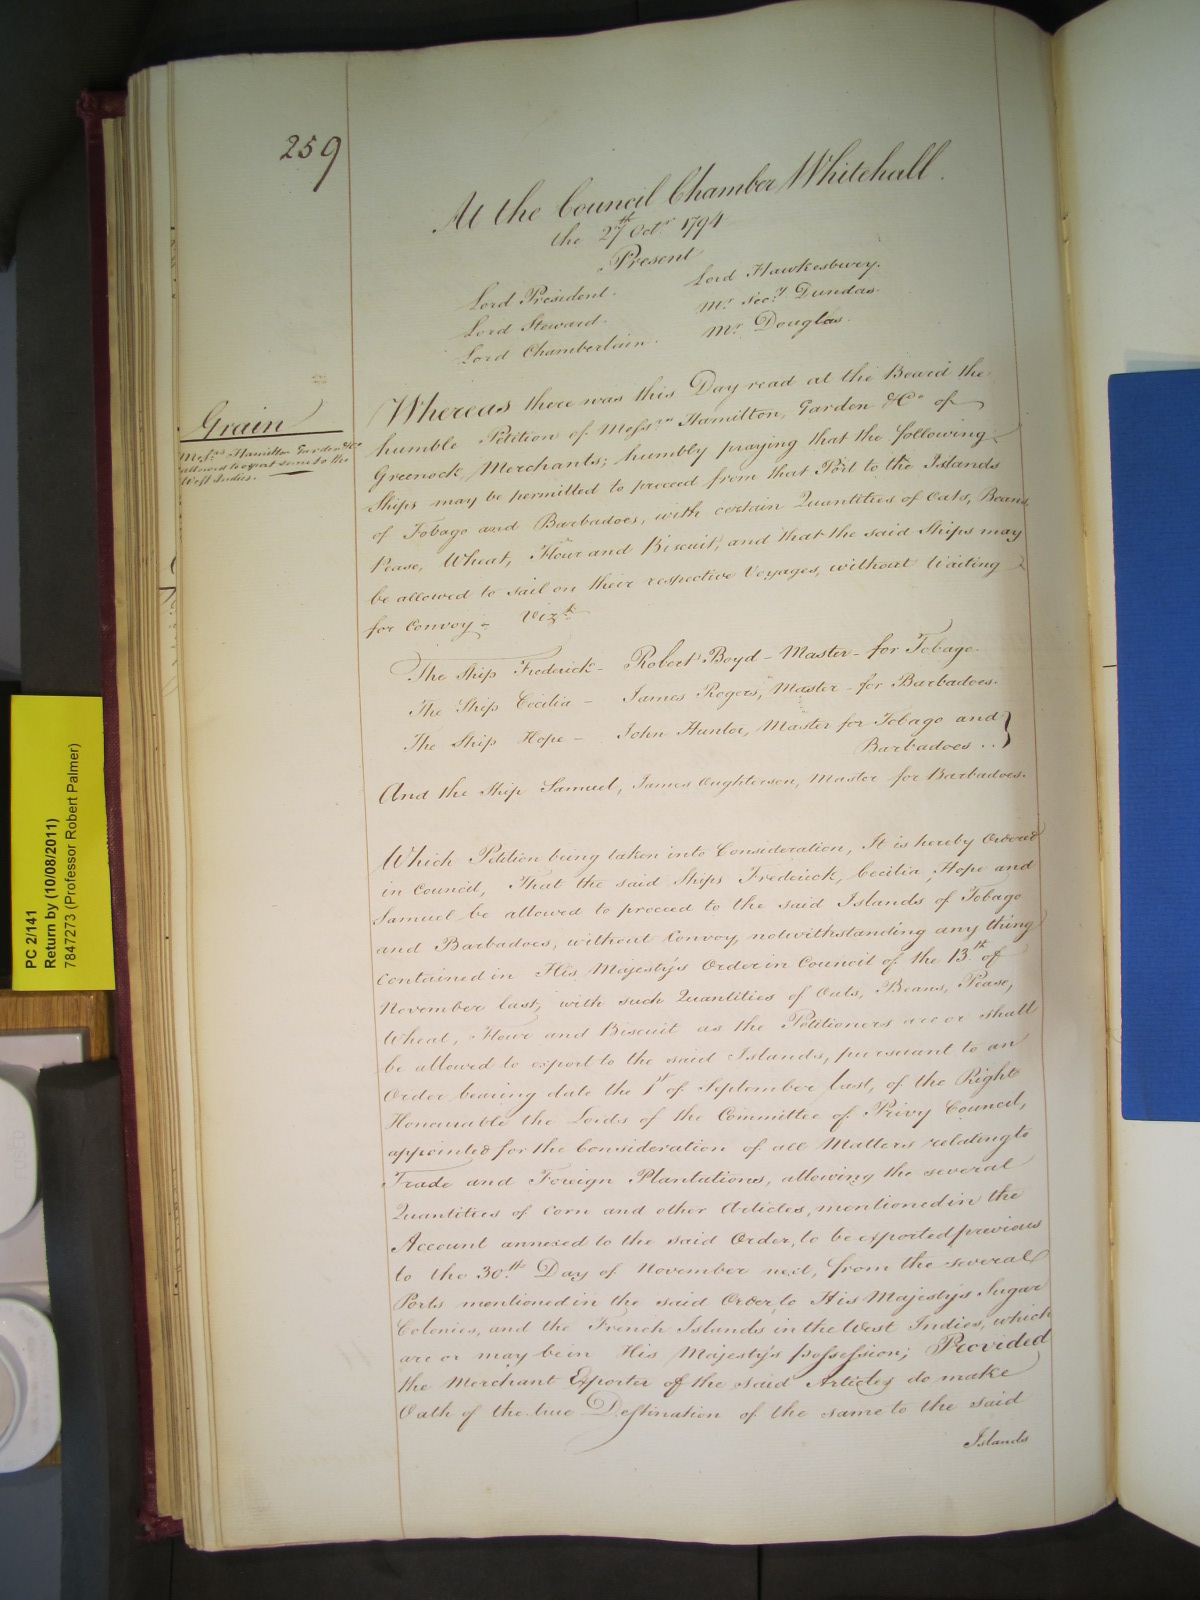 259
At the Council Chamber Whitehall.
the 27th Octr 1794
Present
Lord President. Lord Hawkesbury.
Lord Steward. Mr Secy Dundas.
Lord Chamberlain. Mr Douglas.
Grain
Messrs Hamilton Garden &Co
allowed to export some to the
West Indies.
Whereas there was this Day read at the Board the
humble Petition of Messrs Hamilton, Garden &Co of
Greenock, Merchants; humbly praying that the following
Ships may be permitted to proceed from that Port to the Islands
of Tobago and Barbadoes, with certain Quantities of Oats, Beans,
Pease, Wheat, Flour and Biscuit, and that the said Ships may
be allowed to sail on their respective Voyages, without Waiting
for Convoy - Vizt
The Ship Frederick - Robert Boyd - Master - for Tobago.
The Ship Cecilia - James Rogers, Master - for Barbadoes.
The Ship Hope - John Hunter, Master for Tobago and
Barbadoes ..}
And the Ship Samuel, James Oughterson, Master for Barbadoes.
Which Petition being taken into Consideration, It is hereby Ordered
in Council, That the said Ships Frederick, Cecilia, Hope and
Samuel be allowed to proceed to the said Islands of Tobago
and Barbadoes, without Convoy, notwithstanding any thing
contained in His Majesty's Order in Council of the 13th of
November last, with such Quantities of Oats, Beans, Pease,
Wheat, Flour and Biscuit as the Petitioners are or shall
be allowed to export to the said Islands, pursuant to an
Order bearing date the 1st of September last, of the Right
Honourable the Lords of the Committee of Privy Council,
appointed for the Consideration of all Matters relating to
Trade and Foreign Plantations, allowing the several
Quantities of Corn and other Articles, mentioned in the
Account annexed to the said Order, to be exported previous
to the 30th Day of November next, from the several
Ports mentioned in the said Order, to His Majesty's Sugar
Colonies, and the French Islands in the West Indies, which
are or may be in His Majesty's possession; Provided
the Merchant Exporter of the said Articles do make
Oath of the true Destination of the same to the said
Islands
PC 2/141
Return by (10/08/2011)
7847273 (Professor Robert Palmer)